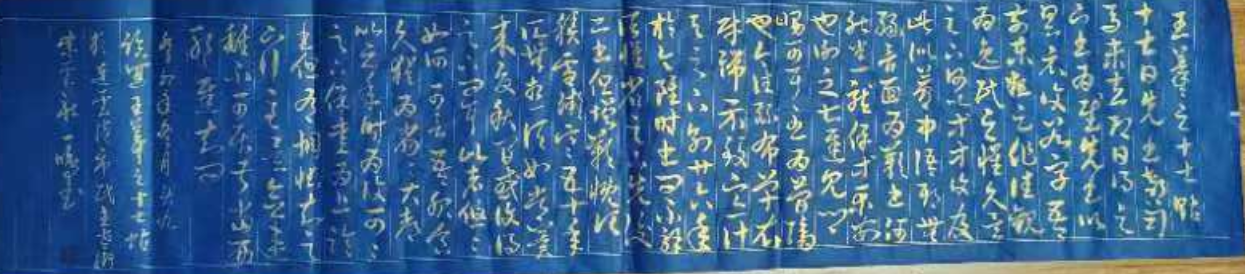 王羲之十七帖
十七日先書郗司
馬未去即日得足
下書為慰先書以
具示復數字吾
前東粗足作佳觀
為逸民之懷久矣
足下何以等復及
此似夢中語耶無
緣言面為歎書何
能悉龍保等平安
也謝之甚遲見卿
舅可耳至為簡隔
也今往絲布單衣
財一端示致意計
與足下別廿六年
於今雖時書問不解
闊懷省足下先後
二書但增歎慨頃
積雪凝寒五十年
中所無想頃如常冀
來夏秋間或復得
足下問耳比者悠悠
如何可言吾服食
久猶為劣劣大都
比之年時為復可可
足下保愛為上臨
書但有惆悵知足
下行至吳念違
離不可居叔當西
耶遲知問
年月
臨選王羲之十七帖
於連雲港